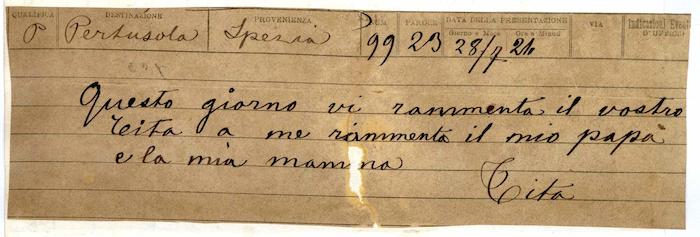 QUALIFICA DESTINAZIONE PROVENIENZA NUM. PAROLE DATA DELLA PRESENTAZIONE VIA Indicazioni Event.
Giorno e Mese Ore e Minuti D'UFFICIO
P Pertusola Spezia 99 23 28/7
Questo giorno vi rammenta il vostro
Tita a me rammenta il mio papa
e la mia mamma
Tita